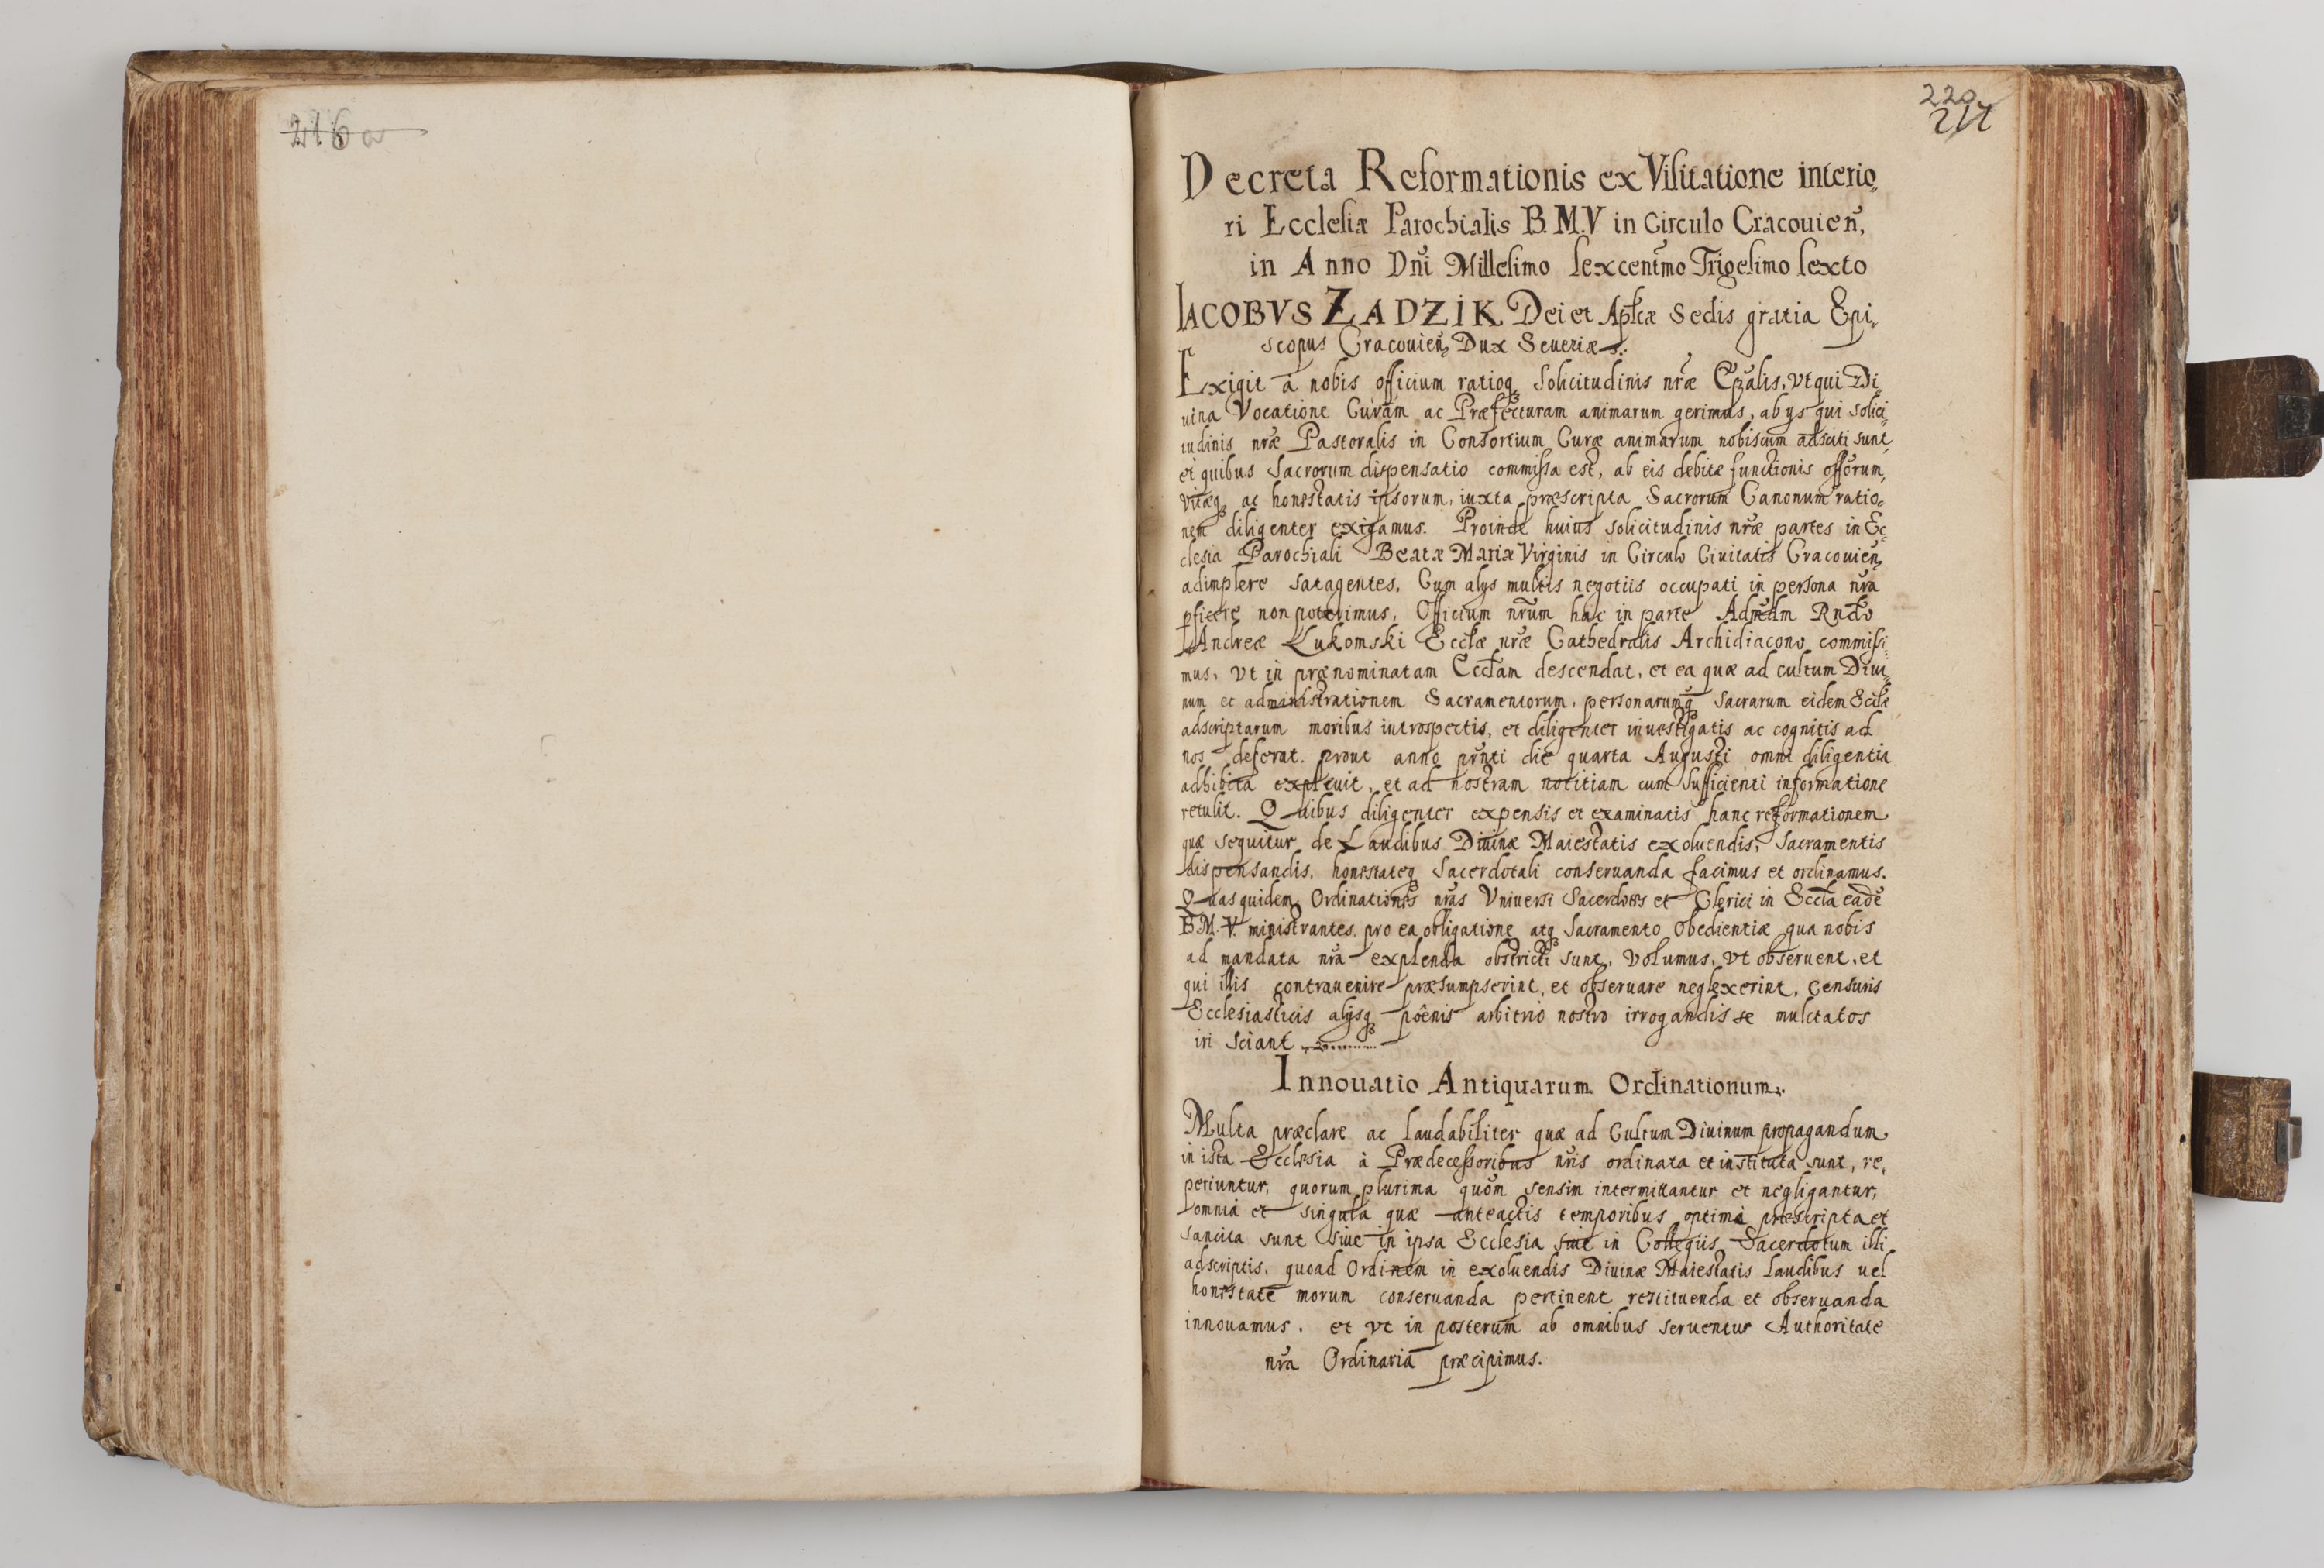 216 a
220
217
Decreta Reformationis ex Visitatione interio„
ri Ecclesiæ Parochialis B.M.V in Circulo Cracouien̄,
in Anno Dn̄i Millesimo sexcentm̄o Trigesimo sexto
IACOBVS ZADZIK Dei et Apl̄cæ Sedis gratia Epi„
scopus Cracouien̄, Dux Seueriæ
Exigit à nobis officium ratioq₃ solicitudinis nr̄æ Ep̄alis, vt qui Di„
uina Vocatione Curam ac Præfecturam animarum gerimus, ab ijs qui solici„
tudinis nr̄æ Pastoralis in Consortium Curæ animarum nobiscum adsciti sunt,
et quibus Sacrorum dispensatio commissa est, ab eis debitæ functionis offōrum,
vitæq₃ ac honestatis ipsorum, iuxta præscripta Sacrorum Canonum ratio„
nem diligenter exigamus. Proinde huius solicitudinis nr̄æ partes in Ec„
clesia Parochiali Beatæ Mariæ Virginis in Circulo Ciuitatis Cracouien̄,
adimplere satagentes, Cum alys multis negotiis occupati in persona nr̄a
pficere non poterimus, Officium nr̄um hac in parte Admd̄m Rnd̄o
Andreæ Lukomski Eccl̄æ nr̄æ Cathedralis Archidiacono commisi„
mus, vt in prænominatam Eccl̄am descendat, et ea quæ ad cultum Diui„
num et administrationem Sacramentorum, personarumq̄₃ Sacrarum eidem Eccl̄æ
adscriptarum moribus introspectis, et diligenter inuestigatis ac cognitis ad
nos deferat. prout anno prn̄ti die quarta Augusti omni diligentia
adhibita expleuit, et ad nostram notitiam cum sufficienti informatione
retulit. Quibus diligenter expensis et examinatis hanc reformationem
quæ sequitur de Laudibus Diuinæ Maiestatis exoluendis, Sacramentis
dispensandis, honestateq₃ Sacerdotali conseruanda facimus et ordinamus.
Quas quidem Ordinationes nr̄as Vniuersi Sacerdotes et Clerici in Eccl̄a eadē
B.M.V. ministrantes, pro ea obligatione atq₃ Sacramento Obedientiæ qua nobis
ad mandata nr̄a explenda obstricti sunt, volumus, vt obseruent, et
qui illis contrauenire præsumpserint, et obseruare neglexerint, censuris
Ecclesiasticis alijsq₃ pœnis arbitrio nostro irrogandis se mulctatos
iri sciant
Innouatio Antiquarum Ordinationum.
Multa præclare ac laudabiliter quæ ad Cultum Diuinum propagandum
in ista Ecclesia à Prædecessoribus nr̄is ordinata et instituta sunt, re„
periuntur, quorum plurima quōm sensim intermittantur et negligantur,
omnia et singula quæ anteactis temporibus optimè præscripta et
sancita sunt siue in ipsa Ecclesia siue in Collegiis Sacerdotum illi
adscriptis, quoad Ordinem in exoluendis Diuinæ Maiestatis laudibus uel
honestate morum conseruanda pertinent restituenda et obseruanda
innouamus, et vt in posterum ab omnibus seruentur Authoritate
nr̄a Ordinaria præcipimus.